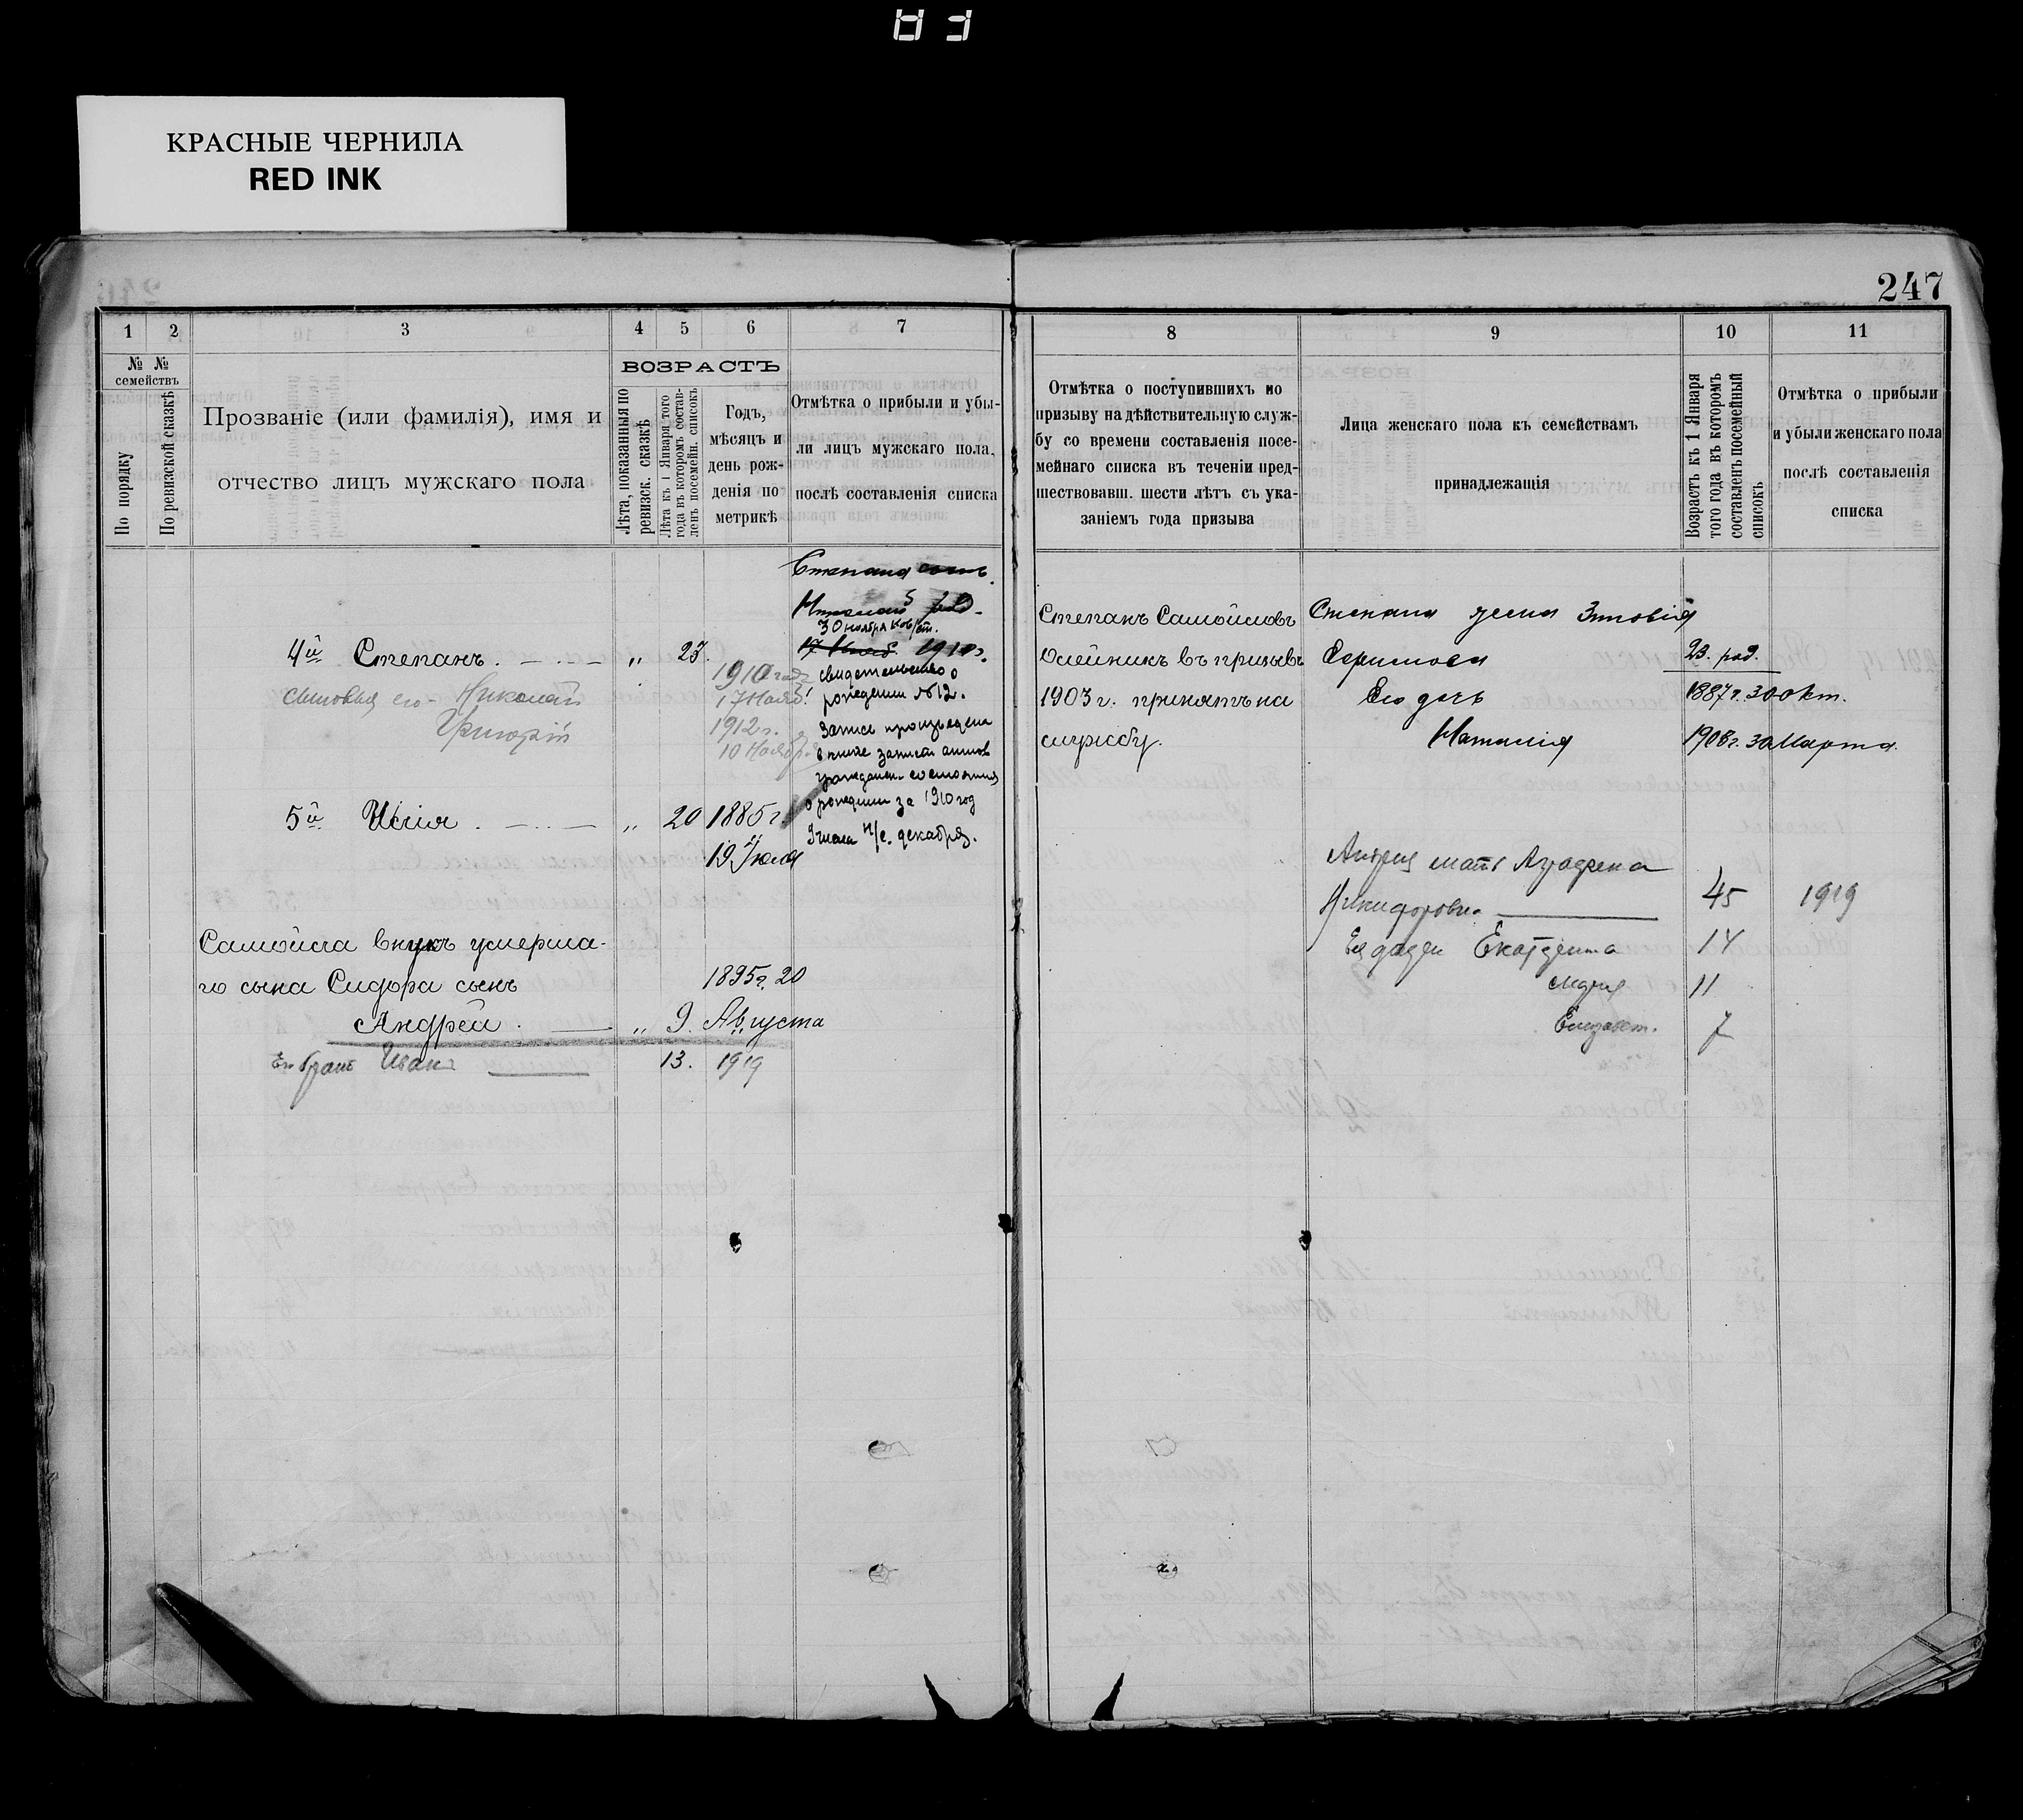 КРАСНЫЕ ЧЕРНИЛА
RED INK
247
1 2 3 4 5 6 7
№ № семействъ
По порядку
По ревизской сказкѣ
Прозваніе (или фамилія), имя и
отчество лицъ мужскаго пола
ВОЗРАСТЪ
Лѣта, показанныя по
ревизск. сказкѣ
Лѣта къ 1 Января того
года въ которомъ состав-
ленъ посемейн. списокъ
Годъ,
мѣсяцъ и
день рож-
денія по
метрикѣ
Отмѣтка о прибыли и убы-
ли лицъ мужскаго пола,
послѣ составленія списка
Степана сынъ
Николай
30 ноября нов/ст.
17 Нояб. 1910г.
свидетельство о
рождении №12.
Запись произведена
в книге записи актов
гражданск. состояния
о рождении за 1910 год
н/с. декабря.
4й Степанъ . — .. — „ 23.
сыновья его - Николай 1910 года
17 Нояб.
Григорій 1912 г.
10 Ноябр.
5й Илія . — .. — „ 20 1885 г.
19 Іюля
Самойла внукъ умерша-
го сына Сидора сынъ 1895г. 20
Андрей . — „ 9. Августа
Ег братъ Иванъ 13. 1919
8 9 10 11
Отмѣтка о поступившихъ по
призыву на дѣйствительную служ-
бу со времени составленія посе-
мейнаго списка въ теченіи пред-
шествовавш. шести лѣтъ съ ука-
заніемъ года призыва
Лица женскаго пола къ семействамъ
принадлежащія
Возрастъ къ 1 Января
того года въ которомъ
составленъ посемейный
списокъ
Отмѣтка о прибыли
и убыли женскаго пола
послѣ составленія
списка
Степанъ Самойловъ
Олейникъ въ призывъ
1903 г. принятъ на
службу.
Степана жена Зиновія
23. род.
Его дочь 1887 г. 30 Окт.
Наталія 1908 г. 30 Марта.
Андрея мать
Никифоровна 45 1919
14
Лидия 11
Елизавет. 7